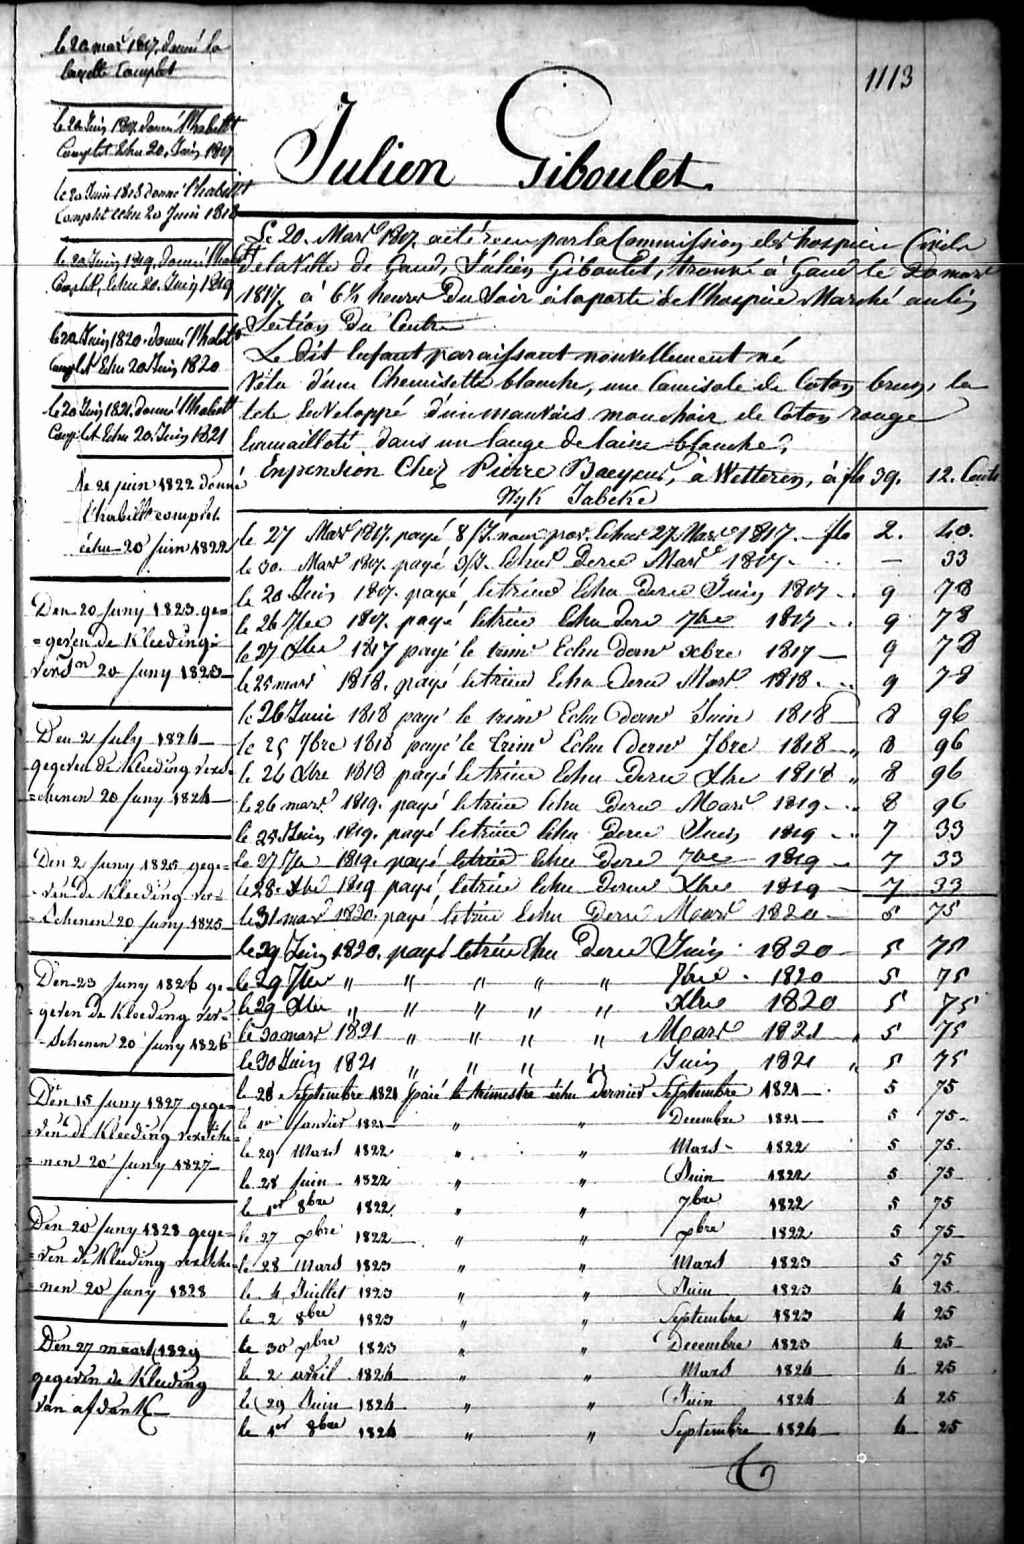 1113
Julien Giboulet.
le 20 mars 1817, donné la
layette Complet
le 20 Juin 1817. donné l'habillt
Complet Echu 20. Juin 1817
le 20 Juin 1818 donné l'habillt
Complet echu 20 Juin 1818
le 20 Juin 1819. donné l'habillt
Complet, Echu 20. Juin 1819
le 20 Juin 1820. donné l'habillt
Complet Echu 20 Juin 1820
le 20 Juin 1821, donné l'habillt
Complet Echu 20. Juin 1821
le 21 juin 1822 donné
l'habillt complet
échu 20 juin 1822
Den 20 Juny 1823 ge=
=geven de Kleeding
versn 20 Juny 1823
Den 2 July 1824
gegeven de Kleeding vers=
=chenen 20 Juny 1824
Den 2 Juny 1825 gege=
=ven de Kleeding ver=
=schenen 20 Juny 1825
Den 23 Juny 1826 ge=
=geven de Kleeding ver=
=schenen 20 Juny 1826
Den 15 Juny 1827 gege=
=ven de Kleeding versche=
=nen 20 Juny 1827
Den 20 Juny 1828 gege=
=ven de Kleeding versche=
=nen 20 Juny 1828
Den 27 maart 1829
gegeven de Kleeding
van afdank
Le 20. Mars 1817. a été recu par la Commission des hospices Civils
de la Ville de Gand, Julien Giboulet, trouvé à Gand le 20 mars
1817. à 6½ heures Du Soir à la porte de l'hospice Marché au lin
Section Du Centre
Le dit Enfant paraissant nouvellement né
Vêtu d'une Chemisette blanche, une Camisole de Coton brun, la
tete Enveloppé d'un mauvais mouchoir de Coton rouge
Emmailloté dans un lange de laine blanche.
En pension Chez Pierre à Wetteren, à flo 39. 12. Cents
Wyk Jabeke
le 27 Mars 1817. payé 8/J. nour. prov. Echus 27 Mars 1817. flo 2. 40.
le 30. Mars 1817. payé 3/J. Echus Dern Mars 1817. — 33
le 20 Juin 1817. payé, le trim Echu Dern Juin 1817 9 78
le 26 7bre 1817. payé le trim Echu Dern 7bre 1817 9 78
le 27 Xbre 1817 payé le trimr Echu dernr xbre 1817 — 9 78
le 25 mars 1818. payé le trim Echu Dern Mars 1818 9 78
le 26 Juin 1818 payé le trimr Echu dernr Juin 1818 8 96
le 25 7bre 1818 payé le trimr Echu dernr 7bre 1818 8 96
le 26 Xbre 1818 payé le trim Echu Dern Xbre 1818 " 8 96
le 26 mars 1819. payé le trim Echu Dern Mars 1819 8 96
le 25 Juin 1819. payé le trim Echu Dern Juin 1819 7 33
le 27 7bre 1819. payé le trim Echu Dern 7bre 1819 7 33
le 28. Xbre 1819 payé, le trim Echu Dern Xbre 1819 — 7 33
le 31 mars 1820. payé le trim Echu Dern Mars 1820 5 75
le 29 Juin 1820. payé le trim Echu Dern Juin 1820 5 75
le 29 7bre " " " " " 7bre 1820 5 75
le 29 Xbre " " " " " Xbre 1820 5 75
le 30 mars 1821 " " " " Mars 1821 " 5 75
le 30 Juin 1821 " " " " Juin 1821 " 5 75
le 28 Septembre 1821 payé le trimestre échu dernier Septembre 1821 5 75
le 1er Janvier 1821 " " Decembre 1821 5 75
le 29 Mars 1822 " " Mars 1822 5 75
le 28 juin 1822 " " Juin 1822 5 75
le 1er 8bre 1822 " " 7bre 1822 5 75
le 27 xbre 1822 " " xbre 1822 5 75
le 28 Mars 1823 " " Mars 1823 5 75
le 4 Juillet 1823 " " Juin 1823 4 25
le 2 8bre 1823 " " Septembre 1823 4 25
le 30 xbre 1823 " " Decembre 1823 4 25
le 2 avril 1824 " " Mars 1824 4 25
le 29 Juin 1824 " " Juin 1824 4 25
le 1er 8bre 1824 " " Septembre 1824 4 25